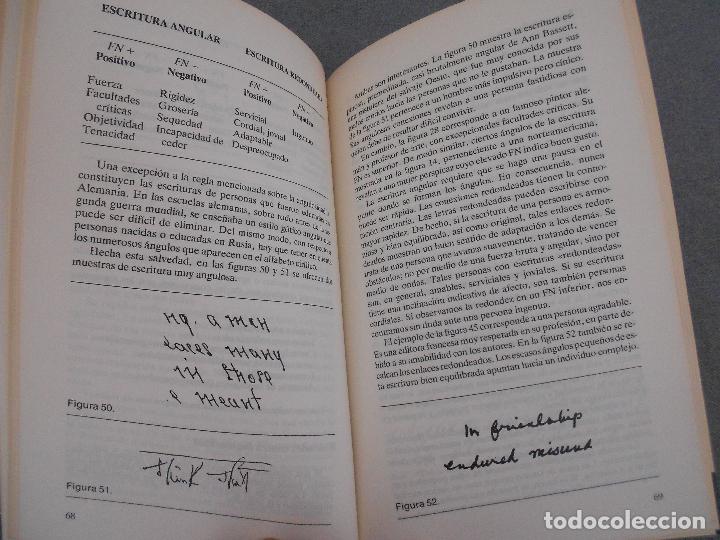 ESCRITURA ANGULAR ESCRITURA REDONDEADA
FN + FN − FN + FN −
Positivo Negativo Positivo Negativo
Fuerza Rigidez Servicial Ingenuo
Facultades Grosería Cordial, jovial
críticas Sequedad Adaptable
Objetividad Incapacidad de Despreocupado
Tenacidad ceder
Una excepción a la regla mencionada sobre la angulosidad la
constituyen las escrituras de personas que fueron educadas en
Alemania. En las escuelas alemanas, sobre todo antes de la se-
gunda guerra mundial, se enseñaba un estilo gótico angular que
puede ser difícil de eliminar. Del mismo modo, con respecto a
personas nacidas o educadas en Rusia, hay que tener en cuenta
los numerosos ángulos que aparecen en el alfabeto cirílico.
Hecha esta salvedad, en las figuras 50 y 51 se ofrecen dos
muestras de escritura muy angulosa.
ng. a men
laces many
in those
e meant
Figura 50.
think that
Figura 51.
68
ser interesantes. La figura 50 muestra la escritura es-
pesa, premeditada, casi brutalmente angular de Ann Bassett,
del salvaje Oeste, que fue muy conocida por sus
hacia las personas que no le gustaban. La muestra
la figura 51 pertenece a un hombre más impulsivo pero cínico.
Sus angulosas conexiones revelan a una persona fastidiosa con
quien debe de resultar difícil convivir.
En cambio, la figura 28 corresponde a un famoso pintor ale-
mán y profesor de arte, con excepcionales facultades críticas. Su
FN es superior. De modo similar, ciertos ángulos de la escritura
mostrada en la figura 14, perteneciente a una norteamericana,
revelan a una mujer perspicaz cuyo elevado FN indica un buen gusto.
La escritura angular requiere que se haga una pausa en el
punto donde se forman los ángulos. En consecuencia, nunca
puede ser rápida. Las conexiones redondeadas tienen la conno-
tación contraria. Las letras redondeadas pueden escribirse con
mayor rapidez. De hecho, si la escritura de una persona es armo-
niosa y bien equilibrada, así como original, tales enlaces redon-
deados muestran un buen sentido de adaptación a los demás. Se
trata de una persona que avanza suavemente, tratando de vencer
obstáculos; no por medio de una fuerza bruta y angular, sino por
medio de ondas. Tales personas con escrituras «redondeadas»
son, en general, amables, serviciales y joviales. Si también
tiene una inclinación indicativa de afecto, son también personas
cordiales. Si observamos la redondez en un FN inferior, nos en-
contramos sin duda ante una persona ingenua.
El ejemplo de la figura 45 corresponde a una persona agradable.
Es una editora francesa muy respetada en su profesión, en parte de-
bido a su amabilidad con los autores. En la figura 52 también se re-
calcan los enlaces redondeados. Los escasos ángulos pequeños de es-
ta escritura bien equilibrada apuntan hacia un individuo complejo.
In friendship
endured misund
Figura 52.
69
todocoleccion
todocoleccion.net